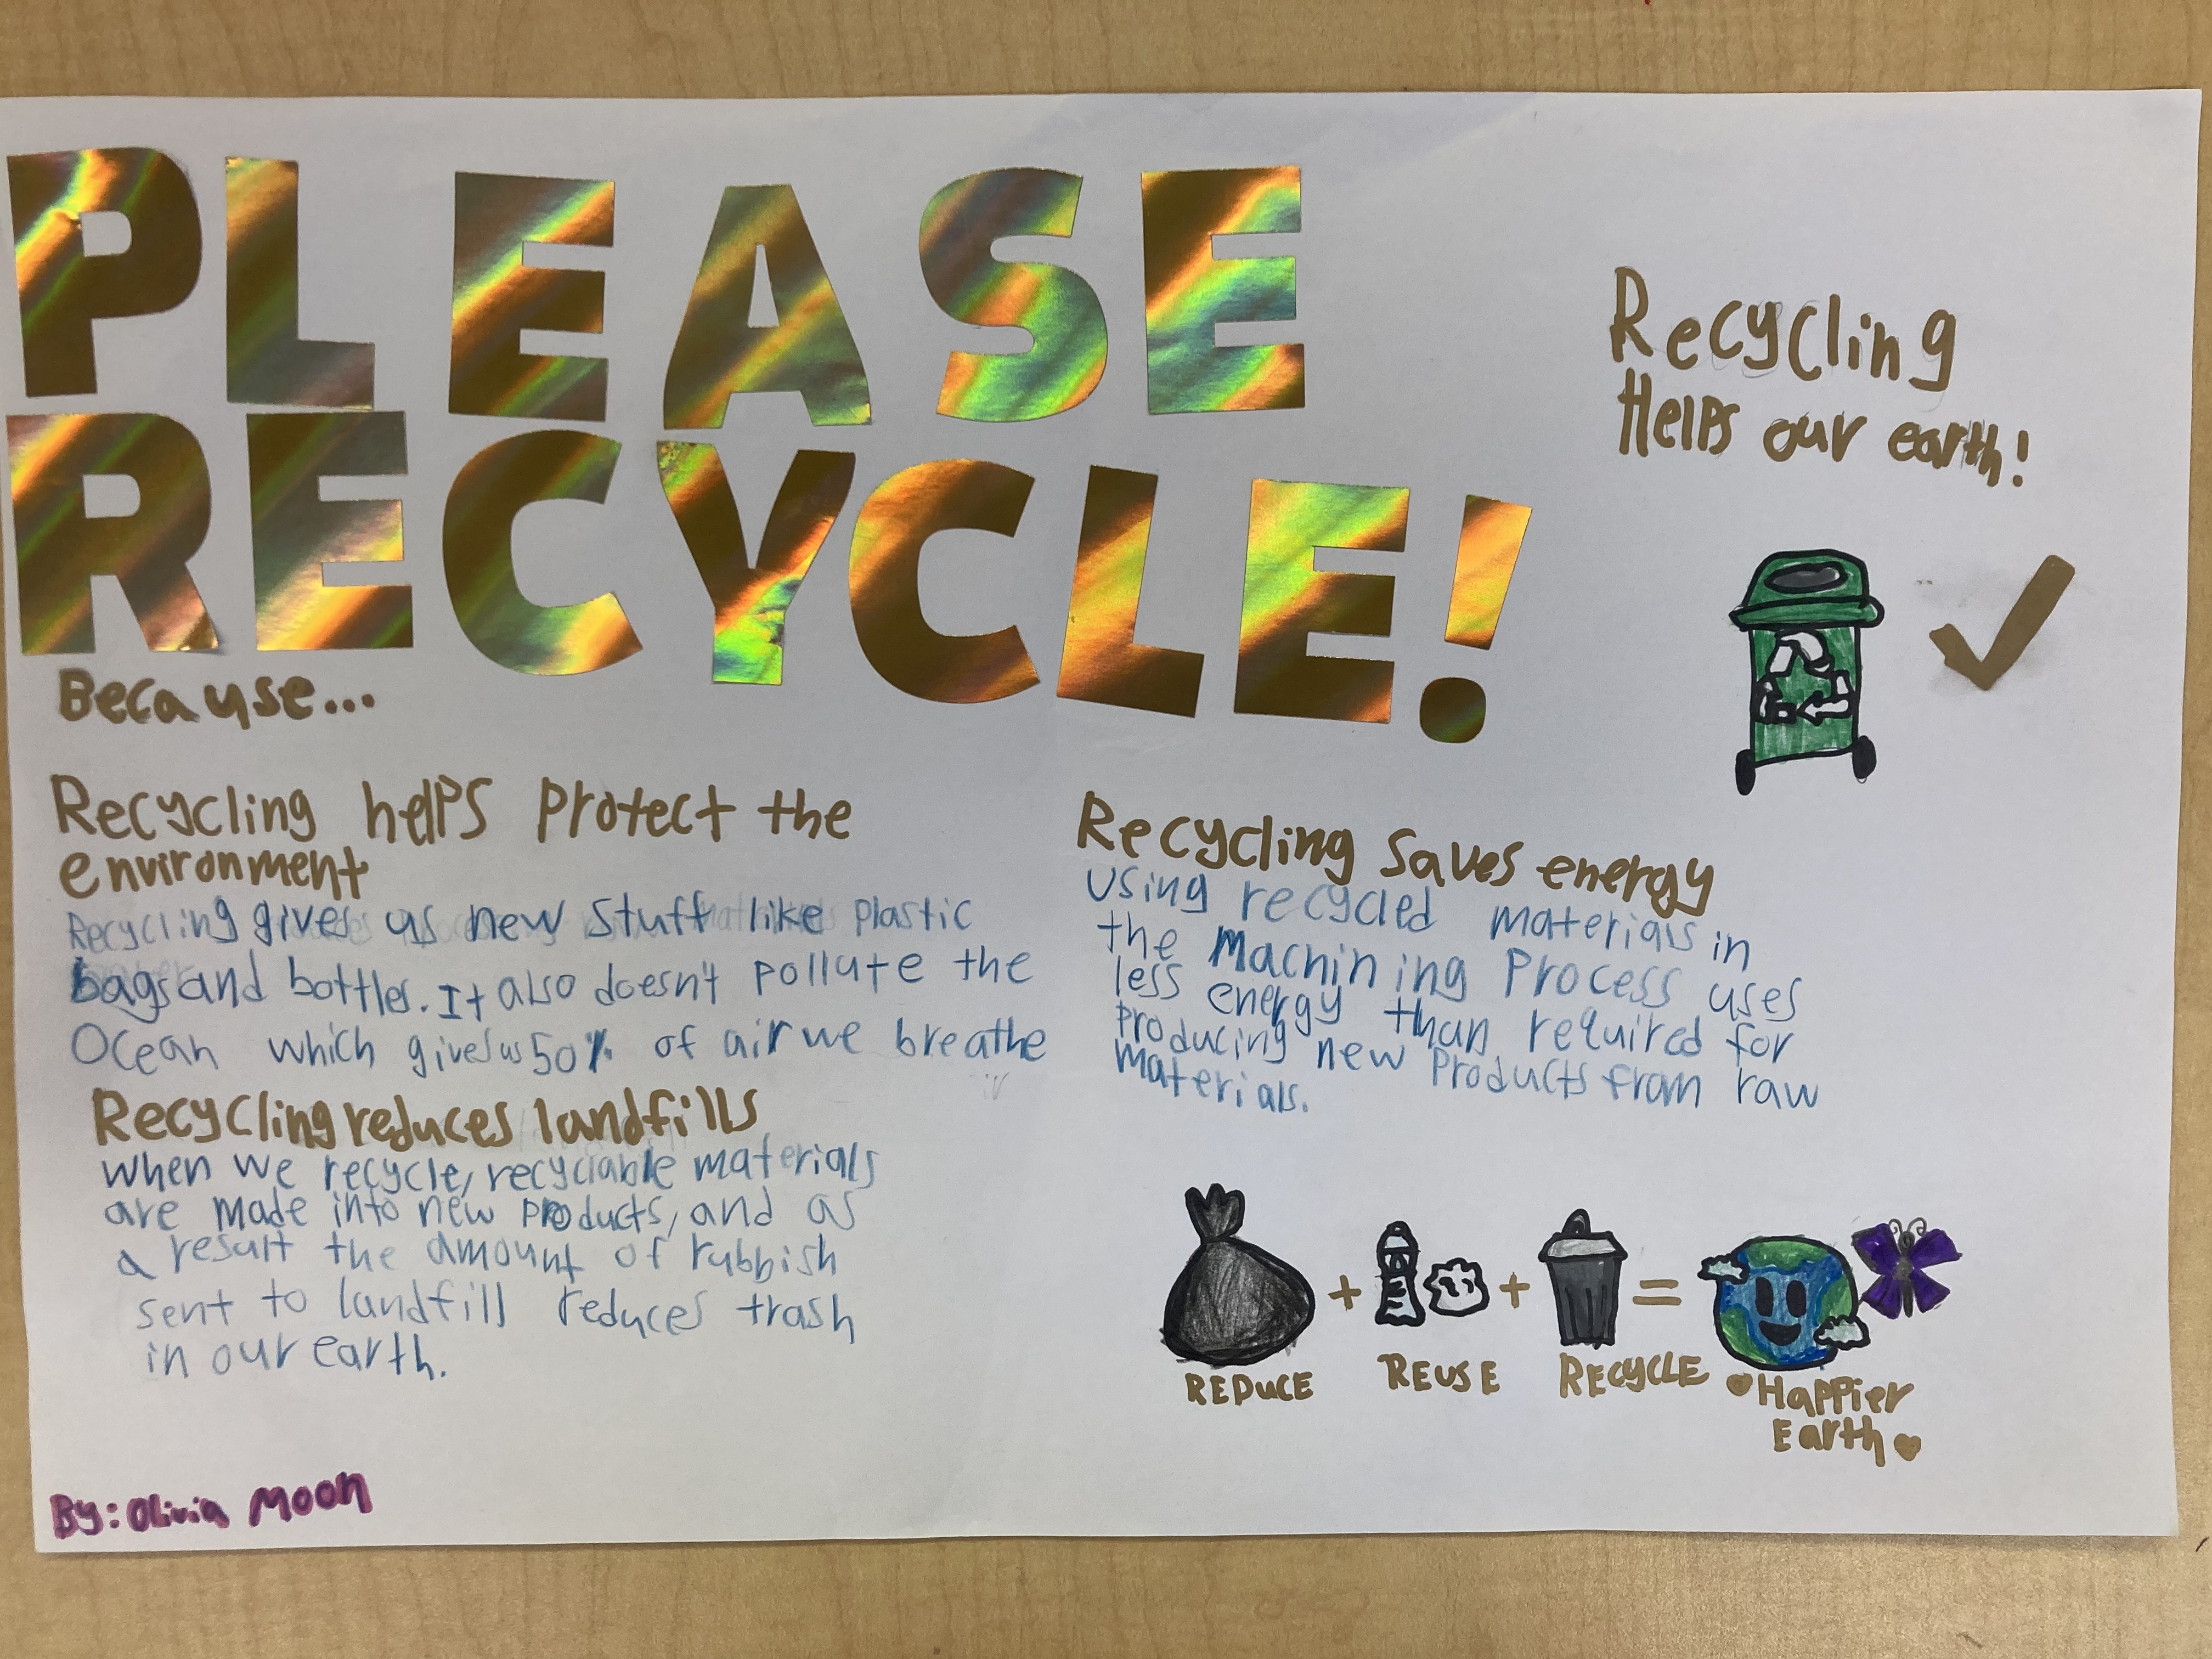 PLEASE
RECYCLE!
Recycling
Helps our earth!
Because...
Recycling helps protect the
environment
Recycling gives us new stuff like plastic
bags and bottles. It also doesn't pollute the
Ocean which gives us 50% of air we breathe
Recycling reduces landfills
when we recycle, recyclable materials
are made into new products, and as
a result the amount of rubbish
sent to landfill reduces trash
in our earth.
Recycling saves energy
Using recycled materials in
the machining process uses
less energy than required for
producing new products from raw
materials.
+ + =
REDUCE REUSE RECYCLE Happier
Earth
By: Olivia Moon